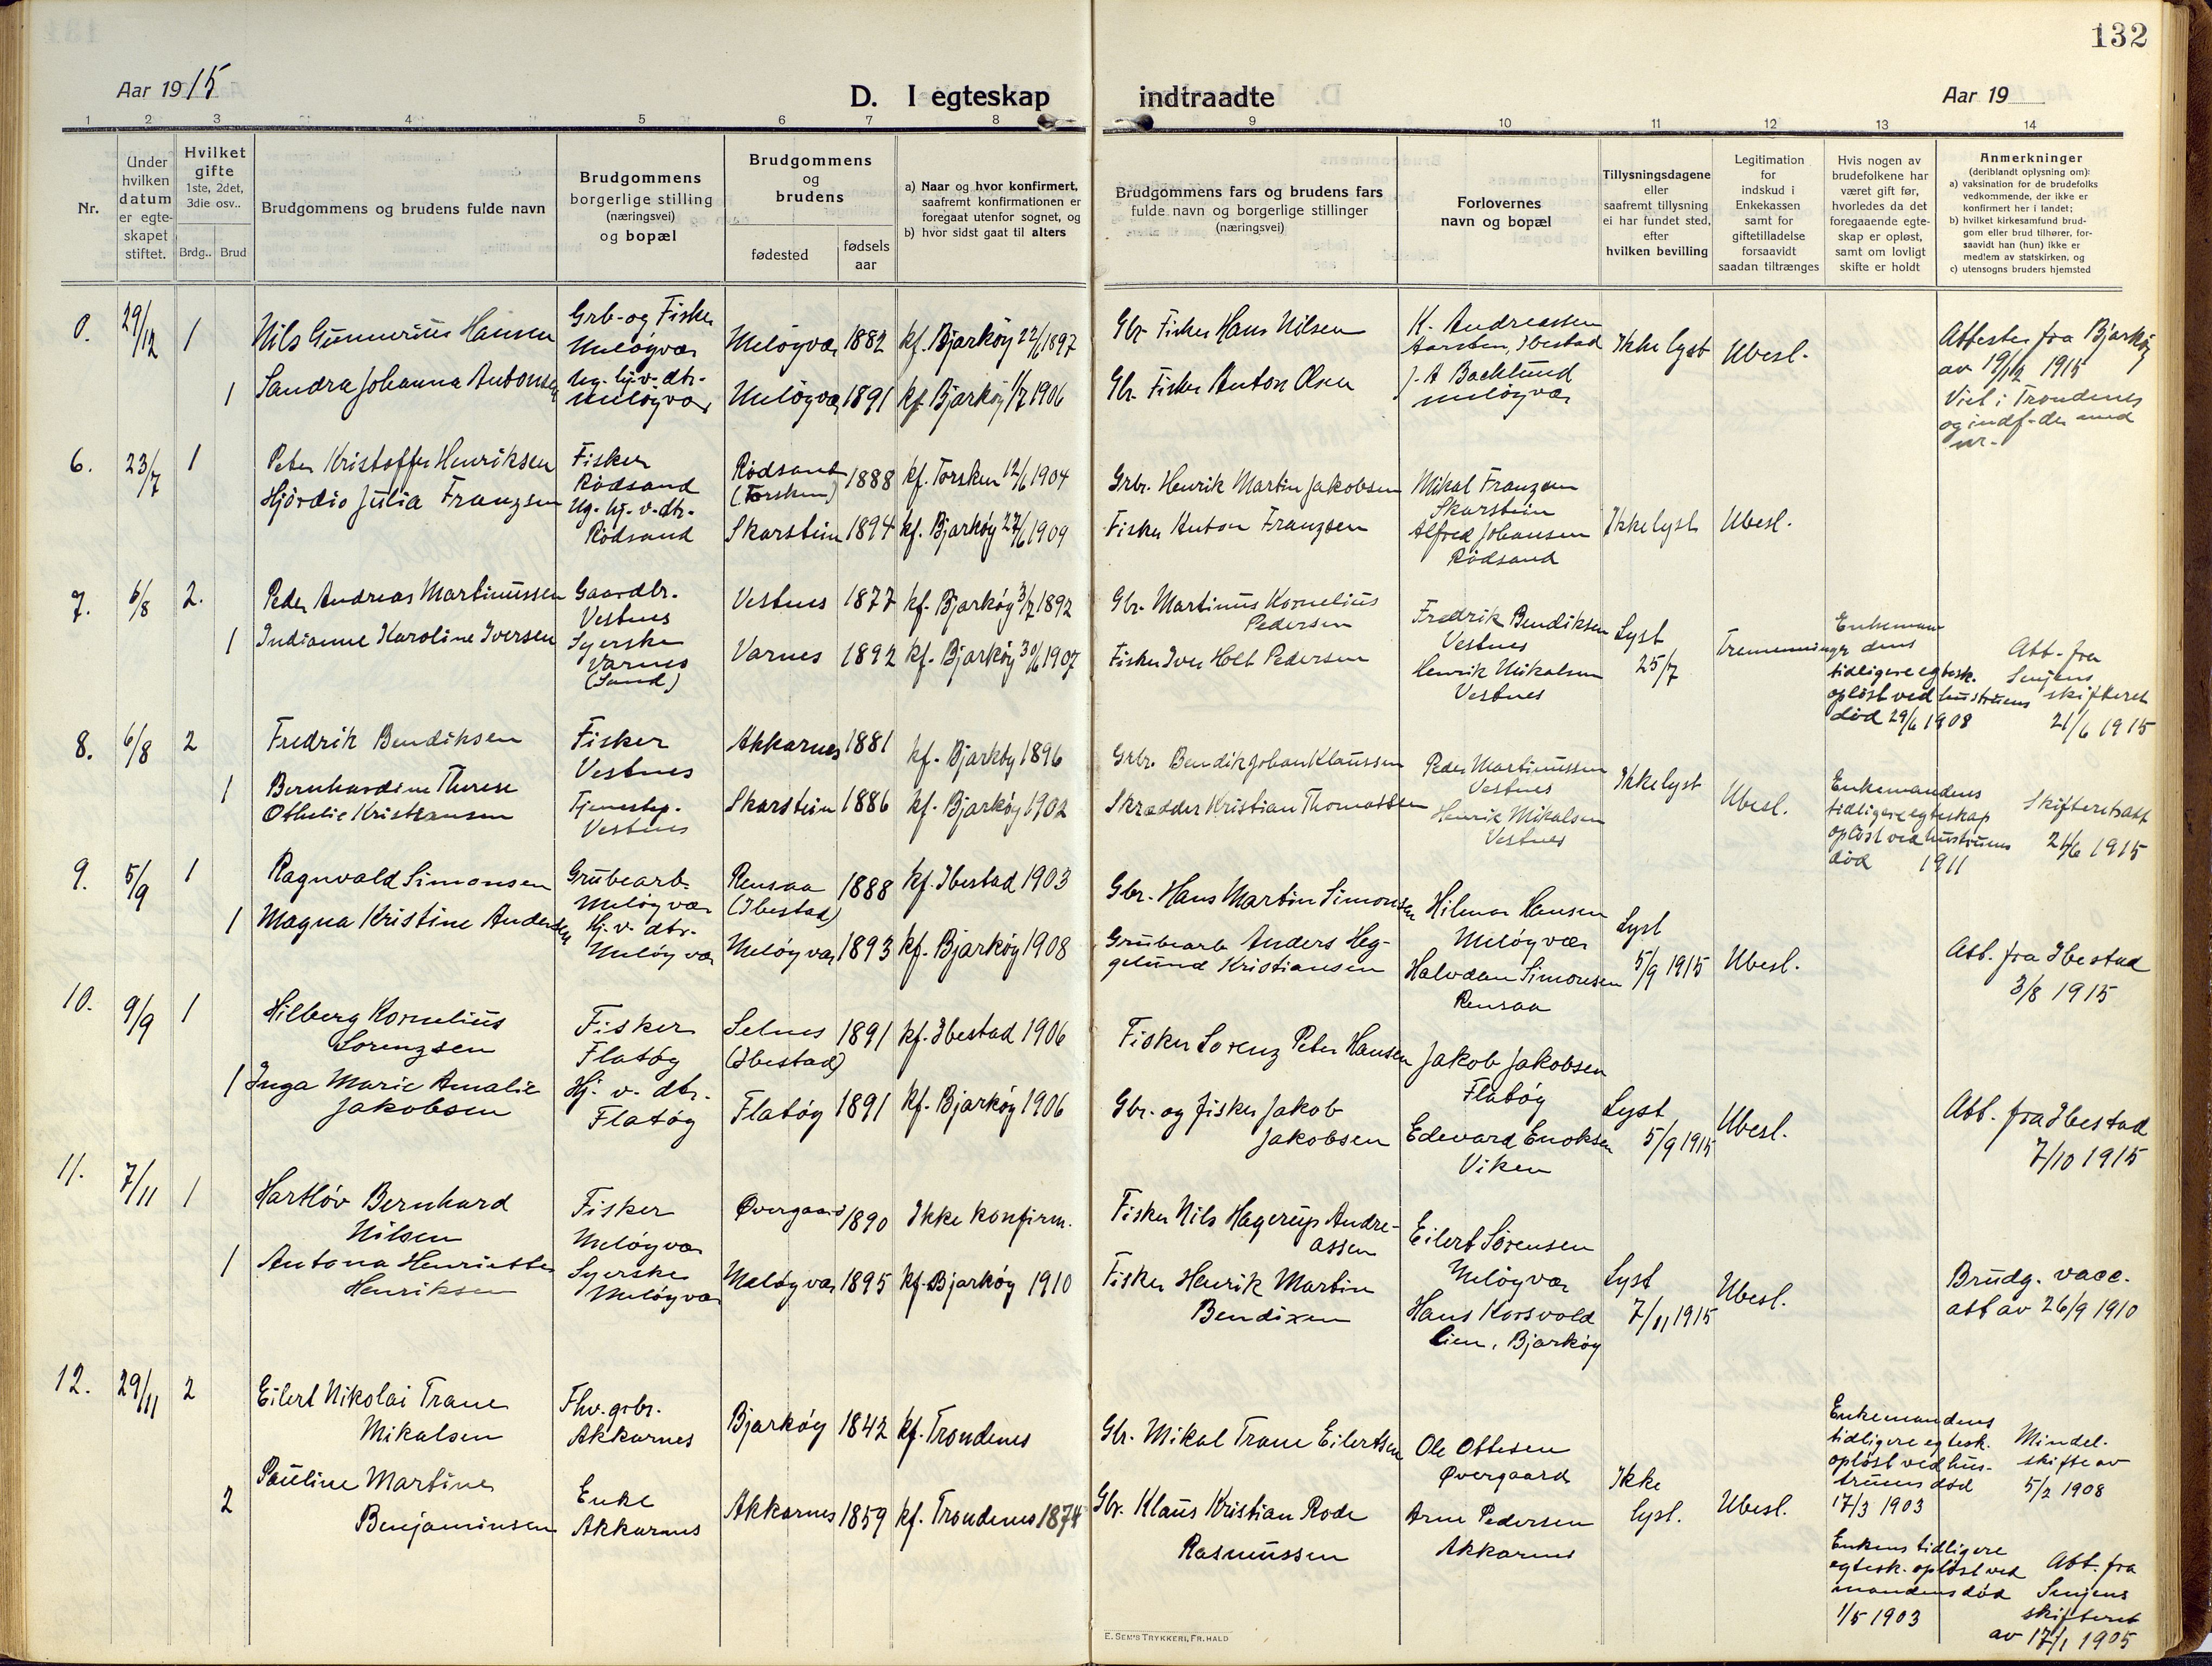 132
Aar 1915
D. I egteskap indtraadte
Aar 19
1 2 3 4 5 6 7 8 9 10 11 12 13 14
Nr.
Under
hvilken
datum
er egte-
skapet
stiftet.
Hvilket
gifte
1ste, 2det,
3die osv..
Brdg.. Brud
Brudgommens og brudens fulde navn
Brudgommens
borgerlige stilling
(næringsvei)
og bopæl
Brudgommens
og
brudens
fødested
fødsels
aar
a) Naar og hvor konfirmert,
saafremt konfirmationen er
foregaat utenfor sognet, og
b) hvor sidst gaat til alters
Brudgommens fars og brudens fars
fulde navn og borgerlige stillinger
(næringsvei)
Forlovernes
navn og bopæl
Tillysningsdagene
eller
saafremt tillysning
ei har fundet sted,
efter
hvilken bevilling
Legitimation
for
indskud i
Enkekassen
samt for
giftetilladelse
forsaavidt
saadan tiltrænges
Hvis nogen av
brudefolkene har
været gift før,
hvorledes da det
foregaaende egte-
skap er opløst,
samt om lovligt
skifte er holdt
Anmerkninger
(deriblandt oplysning om):
a) vaksination for de brudefolks
vedkommende, der ikke er
konfirmert her i landet;
b) hvilket kirkesamfund brud-
gom eller brud tilhører, for-
saavidt han (hun) ikke er
medlem av statskirken, og
c) utensogns bruders hjemsted
0. 29/12 1
Nils Gunnerius Hansen
Grb- og Fisker
Meløyvær
Meløyvær 1882 kf. Bjarkøy 22/6 1897
Gbr. Fisker Hans Nilsen
K. Andreassen
Aarsten, Ibestad
Ikke lyst
Ubesl.
Attester fra Bjarkøy
av 19/12 1915
Viet i Trondenes
og indf. der med
nr.-
1 Sandra Johanna Antonsen
Ug. hj. v. dtr.
Meløyvær
Meløyvær 1891 kf. Bjarkøy 1/7 1906
Gbr. Fisker Anton Olsen
J. A Backlund
Meløyvær
6. 23/7 1
Peter Kristoffer Henriksen
Fisker
Rødsand
Rødsand
(Torsken) 1888 kf. Torsken 12/6 1904
Grbr. Henrik Martin Jakobsen
Mikal Franzsen
Skarstein
Hjørdis Julia Franzsen
Ug. hj. v. dtr.
Rødsand
Skarstein 1894 kf. Bjarkøy 27/6 1909
Fisker Anton Franzsen
Alfred Johansen
Rødsand
Ikke lyst
Ubesl.
7. 6/8 2.
Peder Andreas Martinussen
Gaardbr.
Vestnes
Vestnes 1877 kf. Bjarkøy 3/7 1892
Gbr. Martinus Kornelius
Pedersen
Fredrik Bendiksen
Vestnes
Lyst
25/7
Tremenninger
Enkeman
dens
tidligere egtesk.
opløst ved hustruens
død 29/6 1908
Att. fra
Senjens
skifteret
21/6 1915
1 Indianne Karoline Iversen
Syerske
Varnes
(Sand)
Varnes 1892 kf. Bjarkøy 30/6 1907
Fisker Iver Holt Pedersen
Henrik Mikalsen
Vestnes
8. 6/8 2
Fredrik Bendiksen
Fisker
Vestnes
Akkarnes 1881 kf. Bjarkøy 1896
Grbr. Bendik Johan Klaussen
Peder Martinussen
Vestnes
Ikke lyst
Ubesl.
Enkemandens
tidligere egteskap
opløst ved hustruens
død 1911
Skifteretsatt
21/6 1915
1 Bernhardine Therese
Othelie Kristiansen
Tjenestep.
Vestnes
Skarstein 1886 kf. Bjarkøy 1902
Skrædder Kristian Thomassen
Henrik Mikalsen
Vestnes
9. 5/9 1
Ragnvald Simonsen
Grubearb.
Meløyvær
Rensaa
(Ibestad) 1888 kf. Ibestad 1903
Gbr. Hans Martin Simonsen
Hilmar Hansen
Meløyvær
Lyst
5/9 1915
Ubesl.
Att. fra Ibestad
3/8 1915
1 Magna Kristine Andersen
Hj. v. dtr.
Meløyvær
Meløyvær 1893 kf. Bjarkøy 1908
Grubearb Anders Heg-
gelund Kristiansen
Halvdan Simonsen
Rensaa
10. 9/9 1
Hilberg Kornelius
Lorenzsen
Fisker
Flatøy
Selnes
(Ibestad) 1891 kf. Ibestad 1906
Fisker Lorenz Peter Hansen
Jakob Jakobsen
Flatøy
1 Inga Marie Amalie
Jakobsen
Hj. v. dtr.
Flatøy
Flatøy 1891 kf. Bjarkøy 1906
Gbr. og fisker Jakob
Jakobsen
Edevard Enoksen
Viken
Lyst
5/9 1915
Ubesl.
Att. fra Ibestad
7/10 1915
11. 7/11 1
Hartløv Bernhard
Nilsen
Fisker
Meløyvær
Øvergaard 1890 Ikke konfirm.
Fisker Nils Hagerup Andre-
assen
Eilert Sørensen
Meløyvær
1 Antona Henriette
Henriksen
Syerske
Meløyvær
Meløyvær 1895 kf. Bjarkøy 1910
Fisker Henrik Martin
Bendixen
Hans Korsvold
Lien, Bjarkøy
Lyst
7/11 1915
Ubesl.
Brudg. vacc.
att av 26/9 1910
12. 29/11 2
Eilert Nikolai Trane
Mikalsen
Fhv. grbr.
Akkarnes
Bjarkøy 1842 kf. Trondenes
Gbr. Mikal Trane Eilertsen
Ole Ottesen
Øvergaard
Ikke
lyst.
Ubesl.
Enkemandens
tidligere egtesk.
opløst ved hus-
truens død
17/3 1903
Mindel.
skifte av
5/2 1908
2 Pauline Martine
Benjaminsen
Enke
Akkarnes
Akkarnes 1859 kf. Trondenes 1874
Gbr. Klaus Kristian Rode
Rasmussen
Arne Pedersen
Akkarnes
Enkens tidligere
egtesk. opløst ved
mandens død
1/5 1903
Att. fra
Senjens
skifteret
av 17/1 1905
E. SEM'S TRYKKERI, FR. HALD